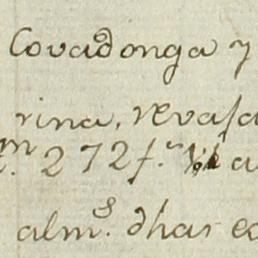 Covadonga y
rina, revasa
m. 272 f.s
alm.s dhas co